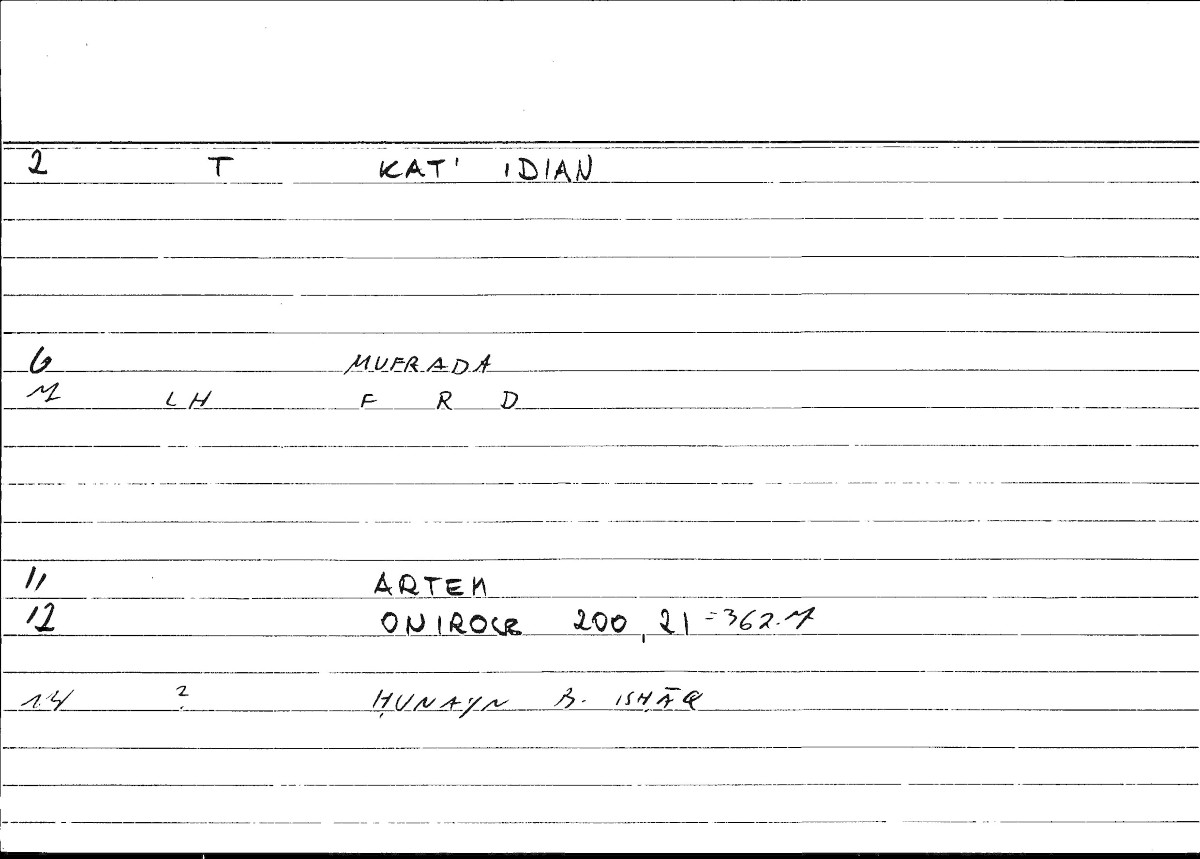 2 T KAT' IDIAN
6 MUFRADA
7 LH F R D
11 ARTEM
12 ONIROCR 200,21 =362.7
14 ? ḤUNAYN B. ISḤĀQ